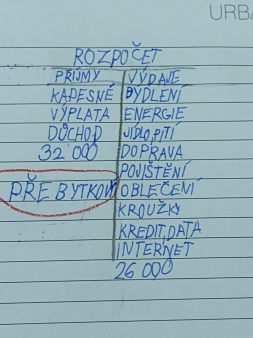 URBA
ROZPOČET
PŘIJMY
KAPESNÉ
VÝPLATA
DŮCHOD
32 000
PŘEBYTKOVÝ
VÝDAJE
BYDLENÍ
ENERGIE
JÍDLO,PITÍ
DOPRAVA
POJIŠTĚNÍ
OBLEČENÍ
KROUŽKY
KREDIT,DATA
INTERNET
26 000